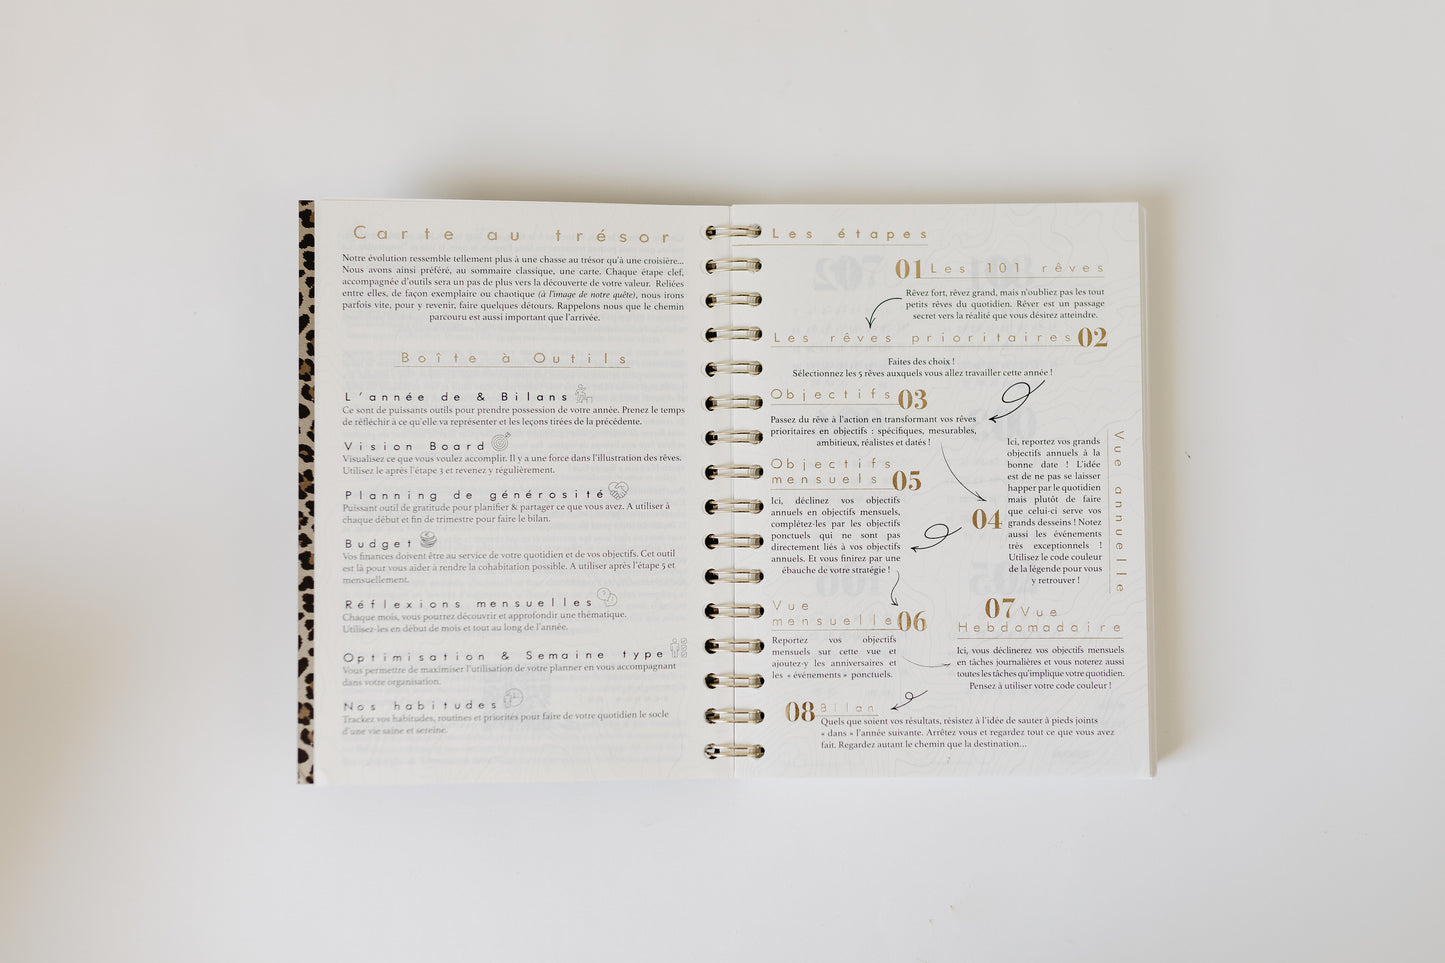 Carte au trésor
Notre évolution ressemble tellement plus à une chasse au trésor qu'à une croisière...
Nous avons ainsi préféré, au sommaire classique, une carte. Chaque étape clef,
accompagnée d'outils sera un pas de plus vers la découverte de votre valeur. Reliées
entre elles, de façon exemplaire ou chaotique (à l'image de notre quête), nous irons
parfois vite, pour y revenir, faire quelques détours. Rappelons nous que le chemin
parcouru est aussi important que l'arrivée.
Boîte à Outils
L'année de & Bilans
Ce sont de puissants outils pour prendre possession de votre année. Prenez le temps
de réfléchir à ce qu'elle va représenter et les leçons tirées de la précédente.
Vision Board
Visualisez ce que vous voulez accomplir. Il y a une force dans l'illustration des rêves.
Utilisez le après l'étape 3 et revenez y régulièrement.
Planning de générosité
Puissant outil de gratitude pour planifier & partager ce que vous avez. A utiliser à
chaque début et fin de trimestre pour faire le bilan.
Budget
Vos finances doivent être au service de votre quotidien et de vos objectifs. Cet outil
est là pour vous aider à rendre la cohabitation possible. A utiliser après l'étape 5 et
mensuellement.
Réflexions mensuelles
Chaque mois, vous pourrez découvrir et approfondir une thématique.
Utilisez-les en début de mois et tout au long de l'année.
Optimisation & Semaine type
Vous permettre de maximiser l'utilisation de votre planner en vous accompagnant
dans votre organisation.
Nos habitudes
Trackez vos habitudes, routines et priorités pour faire de votre quotidien le socle
d'une vie saine et sereine.
Les étapes
01 Les 101 rêves
Rêvez fort, rêvez grand, mais n'oubliez pas les tout
petits rêves du quotidien. Rêver est un passage
secret vers la réalité que vous désirez atteindre.
Les rêves prioritaires 02
Faites des choix !
Sélectionnez les 5 rêves auxquels vous allez travailler cette année !
Objectifs 03
Passez du rêve à l'action en transformant vos rêves
prioritaires en objectifs : spécifiques, mesurables,
ambitieux, réalistes et datés !
04
Vue annuelle
Ici, reportez vos grands
objectifs annuels à la
bonne date ! L'idée
est de ne pas se laisser
happer par le quotidien
mais plutôt de faire
que celui-ci serve vos
grands desseins ! Notez
aussi les événements
très exceptionnels !
Utilisez le code couleur
de la légende pour vous
y retrouver !
Objectifs
mensuels 05
Ici, déclinez vos objectifs
annuels en objectifs mensuels,
complétez-les par les objectifs
ponctuels qui ne sont pas
directement liés à vos objectifs
annuels. Et vous finirez par une
ébauche de votre stratégie !
Vue
mensuelle 06
Reportez vos objectifs
mensuels sur cette vue et
ajoutez-y les anniversaires et
les « événements » ponctuels.
07 Vue
Hebdomadaire
Ici, vous déclinerez vos objectifs mensuels
en tâches journalières et vous noterez aussi
toutes les tâches qu'implique votre quotidien.
Pensez à utiliser votre code couleur !
08 Bilan
Quels que soient vos résultats, résistez à l'idée de sauter à pieds joints
« dans » l'année suivante. Arrêtez vous et regardez tout ce que vous avez
fait. Regardez autant le chemin que la destination...